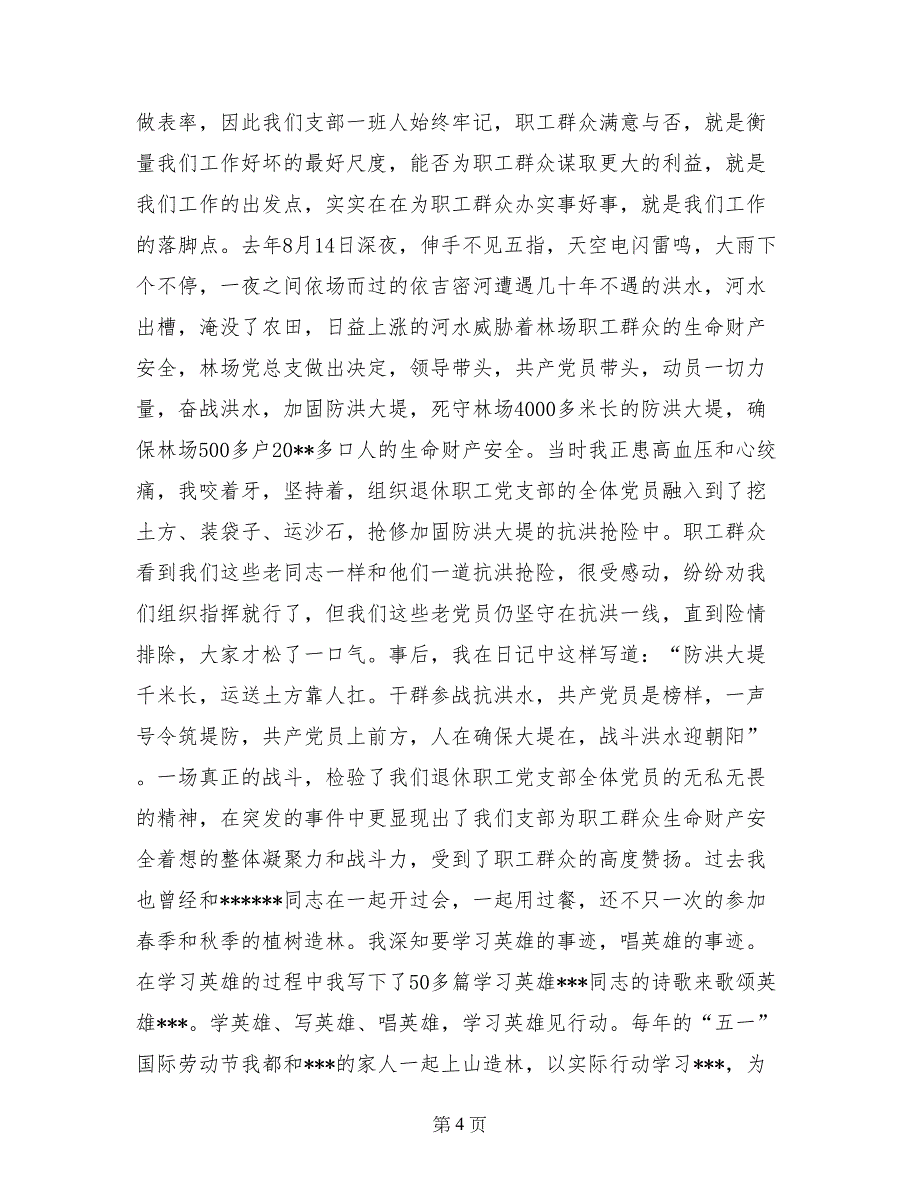 做表率，因此我们支部一班人始终牢记，职工群众满意与否，就是衡
量我们工作好坏的最好尺度，能否为职工群众谋取更大的利益，就是
我们工作的出发点，实实在在为职工群众办实事好事，就是我们工作
的落脚点。去年8月14日深夜，伸手不见五指，天空电闪雷鸣，大雨下
个不停，一夜之间依场而过的依吉密河遭遇几十年不遇的洪水，河水
出槽，淹没了农田，日益上涨的河水威胁着林场职工群众的生命财产
安全，林场党总支做出决定，领导带头，共产党员带头，动员一切力
量，奋战洪水，加固防洪大堤，死守林场4000多米长的防洪大堤，确
保林场500多户20**多口人的生命财产安全。当时我正患高血压和心绞
痛，我咬着牙，坚持着，组织退休职工党支部的全体党员融入到了挖
土方、装袋子、运沙石，抢修加固防洪大堤的抗洪抢险中。职工群众
看到我们这些老同志一样和他们一道抗洪抢险，很受感动，纷纷劝我
们组织指挥就行了，但我们这些老党员仍坚守在抗洪一线，直到险情
排除，大家才松了一口气。事后，我在日记中这样写道：“防洪大堤
千米长，运送土方靠人扛。干群参战抗洪水，共产党员是榜样，一声
号令筑堤防，共产党员上前方，人在确保大堤在，战斗洪水迎朝阳”
。一场真正的战斗，检验了我们退休职工党支部全体党员的无私无畏
的精神，在突发的事件中更显现出了我们支部为职工群众生命财产安
全着想的整体凝聚力和战斗力，受到了职工群众的高度赞扬。过去我
也曾经和******同志在一起开过会，一起用过餐，还不只一次的参加
春季和秋季的植树造林。我深知要学习英雄的事迹，唱英雄的事迹。
在学习英雄的过程中我写下了50多篇学习英雄***同志的诗歌来歌颂英
雄***。学英雄、写英雄、唱英雄，学习英雄见行动。每年的“五一”
国际劳动节我都和***的家人一起上山造林，以实际行动学习***，为
第 4 页